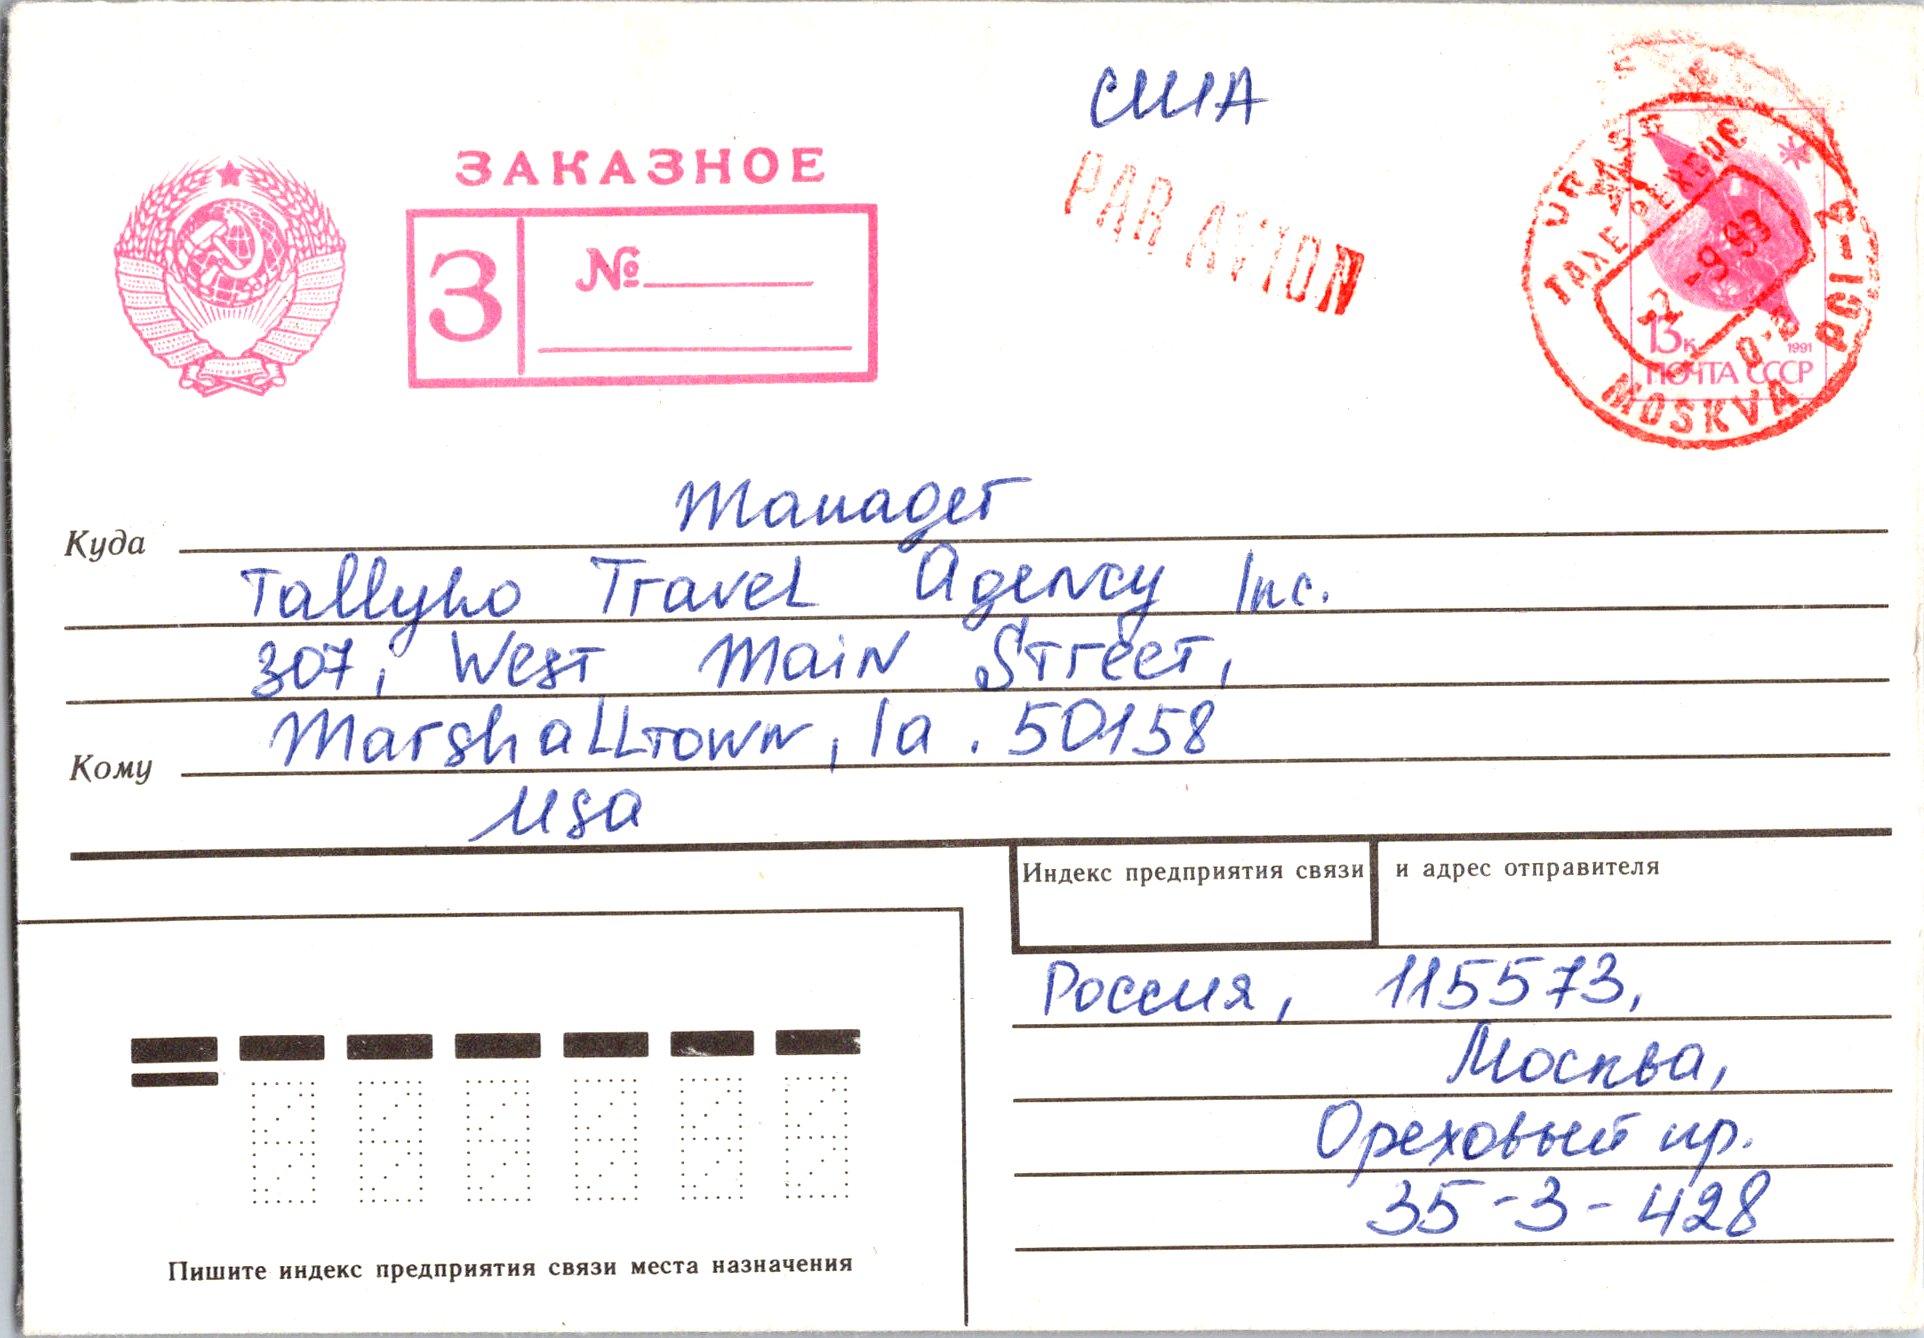 США
ЗАКАЗНОЕ
PAR AVION
З №
13к 1991
ПОЧТА СССР
2 -9.93
MOSKVA PCI-3
Куда Manager
Tallyho Travel Agency Inc.
307, West Main Street,
Marshalltown, Ia. 50158
Кому
Usa
Индекс предприятия связи и адрес отправителя
Россия, 115573,
Москва,
Ореховый пр.
35-3-428
Пишите индекс предприятия связи места назначения